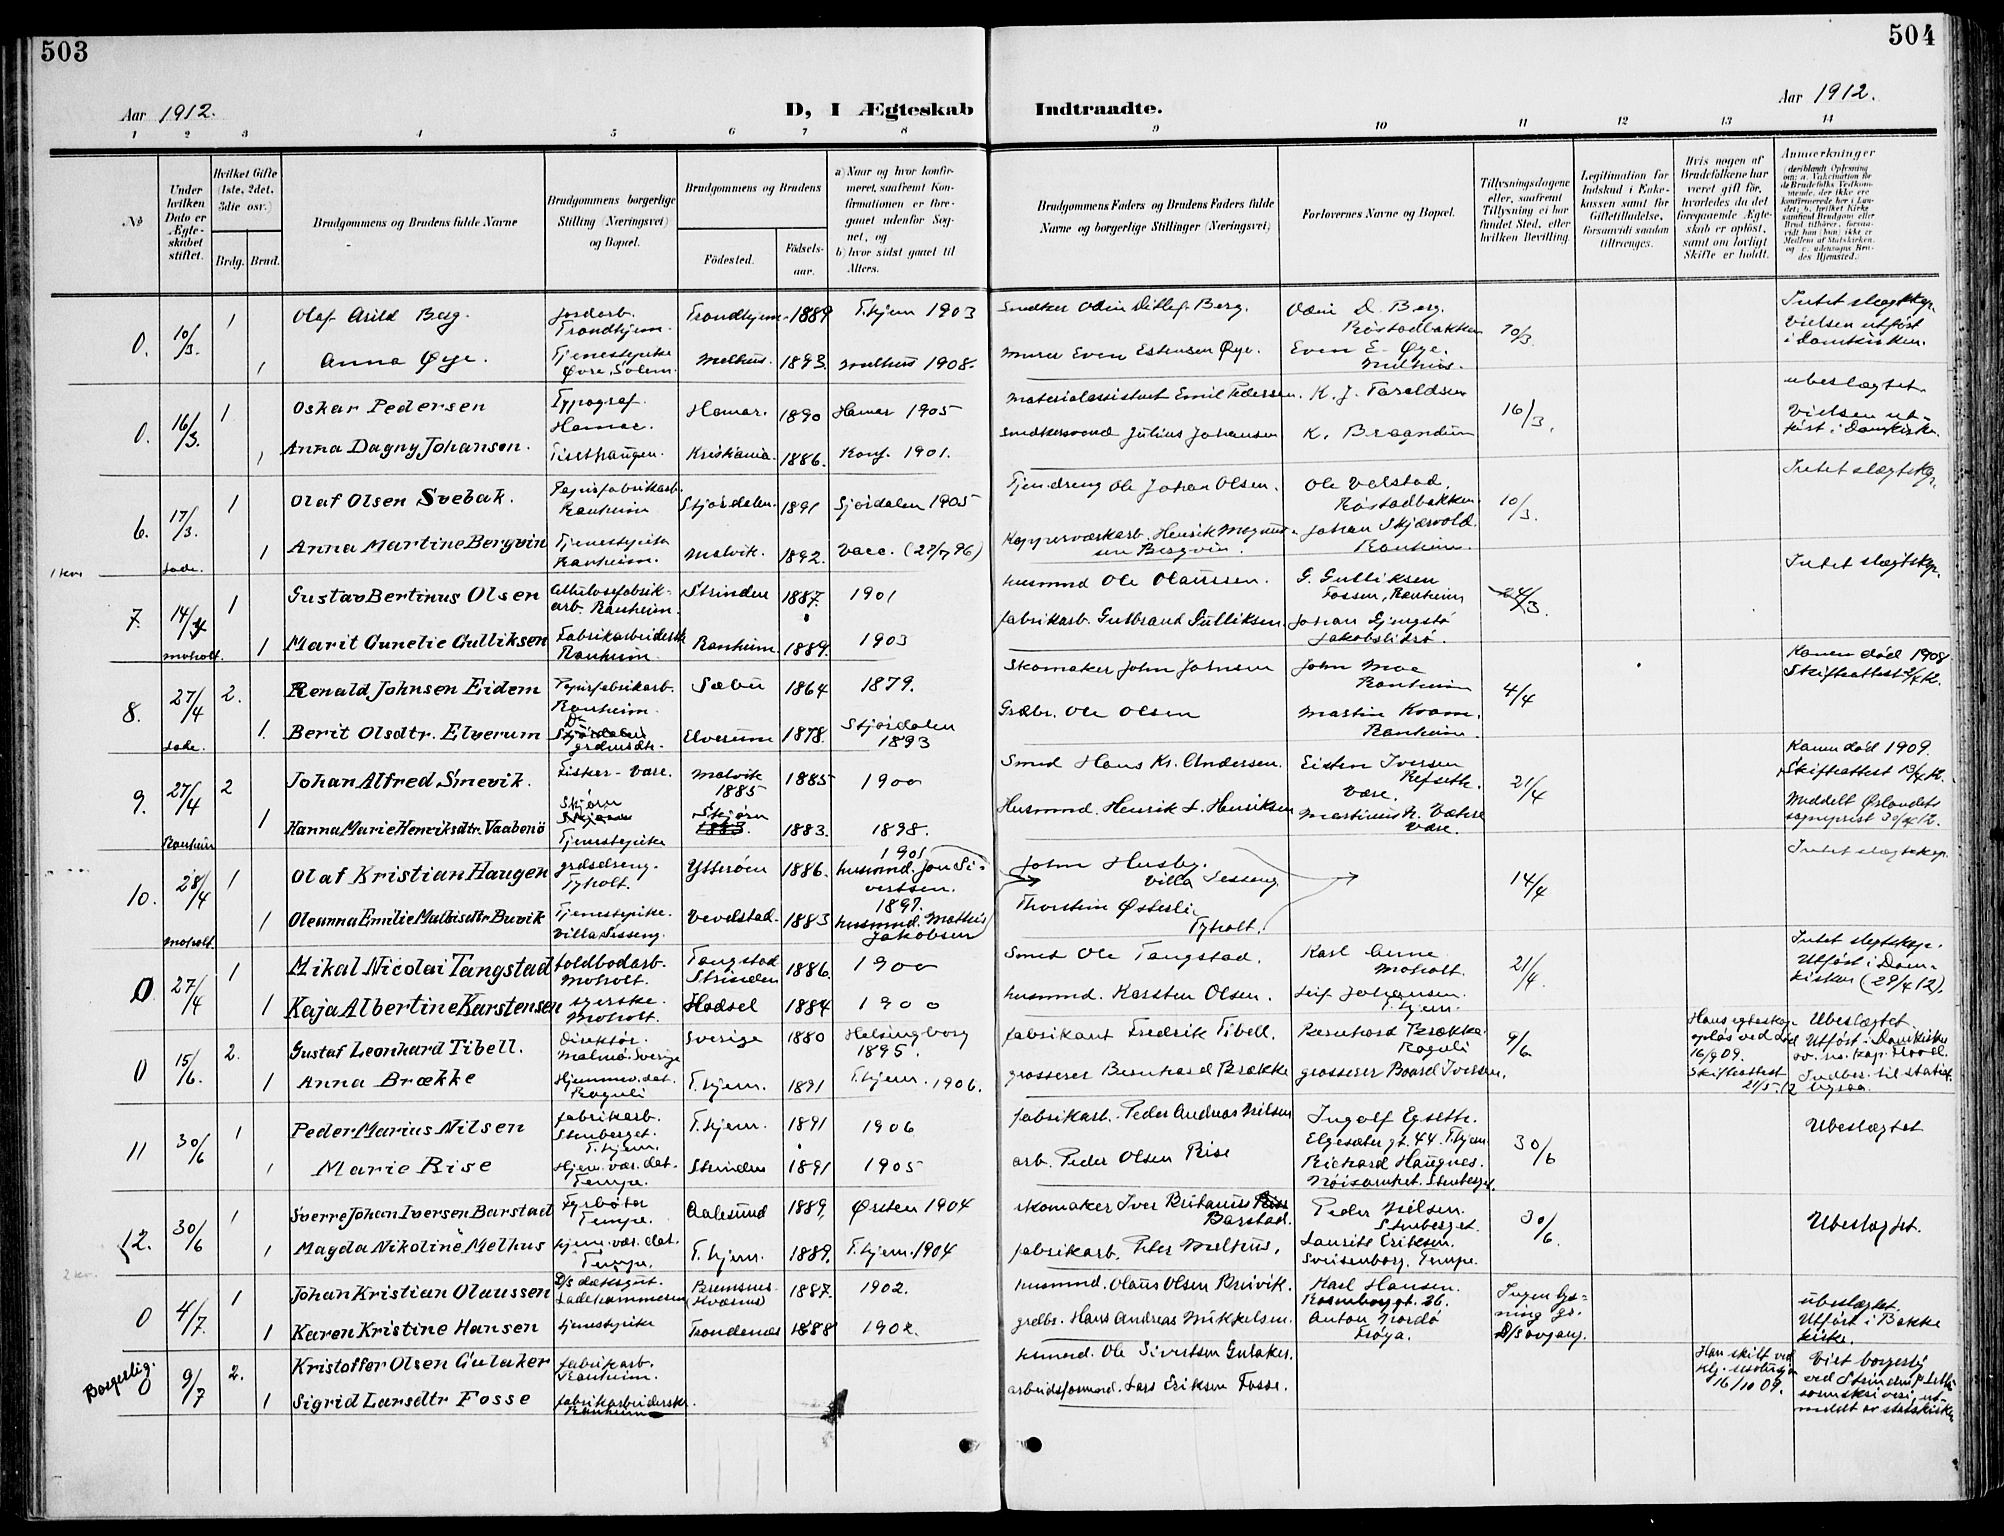 503
504
Aar 1912.
D, I Ægteskab
Indtraadte.
Aar 1912.
1 2 3 4 5 6 7 8 9 10 11 12 13 14
№
Under hvilken Dato er Ægteskabet stiftet.
Hvilket Gifte (1ste, 2det, 3die osv.)
Brdg.
Brud.
Brudgommens og Brudens fulde Navne
Brudgommens borgerlige Stilling (Næringsvei) og Bopæl.
Brudgommens og Brudens
Fødested.
Fødselsaar.
a) Naar og hvor konfirmeret, saafremt Konfirmationen er foregaaet udenfor Sognet, og
b) hvor sidst gaaet til Alters.
Brudgommens Faders og Brudens Faders fulde Navne og borgerlige Stillinger (Næringsvei)
Forlovernes Navne og Bopæl.
Tillysningsdagene eller, saafremt Tillysning ei har fundet Sted, efter hvilken Bevilling.
Legitimation for Indskud i Enkekassen samt for Giftetilladelse, forsaavidt saadan tiltrænges.
Hvis nogen af Brudefolkene har været gift før, hvorledes da det foregaaende Ægteskab er opløst, samt om lovligt Skifte er holdt.
Anmærkninger
0. 10/3. 1 Olaf Arild Berg. Jordarb. Trondhjem. Trondhjem 1889 T.hjem 1903 Snedker Odin Ditlef Berg. Odin D. Berg. Rostadbakken 10/3. Intet slægtskp. Vielsen utført i Domkirken.
1 Anna Øye. Tjenestepike Øvre Solem. Melhus. 1893. Melhus 1908. Murer Even Estensen Øye. Even E. Øye. Melhus.
0. 16/3. 1 Oskar Pedersen Typograf. Hamar. Hamar. 1890 Hamar 1905 Materialassistent Emil Pedersen. K. J. Taraldsen 16/3. ubeslægtet Vielsen utført i Domkirke.
1 Anna Dagny Johansen. Tisethaugen. Kristiania. 1886. Konf. 1901. Snedkersvend Julius Johansen
6. 17/3. Lade. 1 Olaf Olsen Svebak. Papirfabrikarb. Ranheim Stjørdalen. 1891 Sjørdalen 1905 Tjendreng Ole Johan Olsen. Ole Valstad. Rostadbakken. 10/3. Intet slægtskp.
1 Anna Martine Bergvin Tjenestepike Ranheim. Malvik. 1892. Vacc. (27/7 96) Kopperværkarb. Henrik Magnussen Bergvin. Johan Skjærvold. Ranheim.
1 kr.
7. 14/4 Moholt. 1 Gustav Bertinus Olsen Cellulosefabrikarb. Ranheim. Strinden 1887. 1901 husmnd Ole Olaussen. G. Gulliksen Fossen, Ranheim 24/3. Intet slægtskp.
1 Marit Gunelie Gulliksen Fabrikarbeiderske Ranheim. Ranheim. 1889. 1903 fabrikarb. Gulbrand Gulliksen. Johan Gjengstø Jakobslidrø.
8. 27/4 Lade. 2. Renald Johnsen Eidem Papirfabrikarb. Ranheim. Sæbu 1864 1879. Skomaker John Johnsen John Moe Ranheim 4/4 Konen død 1908. Skifteattest 2/4 12.
1. Berit Olsdtr. Elverum Stjørdalen grdmdtr. Elverum 1878. Stjørdalen 1893 Grdbr. Ole Olsen Martin Kvam. Ranheim.
9. 27/4 Ranheim 2 Johan Alfred Smevik. Fisker - Være. Malvik 1885 1885 1900 Smed Hans Kr. Andersen. Eisten Iversen Refseth. Være. 21/4 Konen død 1909. Skifteattest 13/4 12.
1 Hanna Marie Henriksdtr. Vaabenø Skjørn Tjenestepike Skjørn 1883. 1898. Husmnd. Henrik L. Henriksen Martinus N. Vætre Være. Meddelt Ørlandets sogneprest 30/4 12.
10. 28/4 Moholt. 1 Olaf Kristian Haugen grdsdreng. Tyholt. Ytterøen 1886. 1901 husmnd. Jon Sivertsen. John Husby. Villa Sesseng 14/4 Intet slægtskp.
1 Oleanna Emilie Mathisdtr Buvik Tjenestepike. Villa Sesseng. Vevelstad. 1883 1897. husmnd. Mathis Jakobsen Thorstein Østerli Tyholt.
0 27/4 1 Mikal Nicolai Tangstad toldbodarb. Moholt. Tangstad Strinden 1886. 1900 Smed Ole Tangstad. Karl Arne Moholt. 21/4. Intet slegtskp. Utført i Domkirken (29/4 12).
1 Kaja Albertine Karstensen syerske. Moholt. Hadsel 1884 1900 husmnd. Karsten Olsen. Leif Johansen. T.hjem.
0 15/6. 2. Gustaf Leonhard Tibell. Direktør. Malmø. Sverige Sverige 1880 Helsingborg 1895. fabrikant Fredrik Tibell. Bernhard Brække. Roguli 9/6. Hans egteskap opløs ved død 16/9 09. Skifteattest 21/5 12 Ubeslægtet. Utført i Domkirken
1 Anna Brække Hjemmev. det. Roguli T.hjem. 1891 T.hjem. 1906. grosserer Bernhard Brække grosserer Baard Iversen.
11 30/6 1 Peder Marius Nilsen fabrikarb. Stenberget. T.hjem. T.hjem. 1891 1906 fabrikarb. Peder Andreas Nilsen Ingolf Egseth. Elgesæter gt. 44. T.hjem. 30/6 Ubeslægtet
1 Marie Rise Hjem. vær. det. Tempe. Strinden 1891 1905 arb. Peder Olsen Rise Rickard Haugnes. Nøisomhet. Stenberget.
12. 30/6 1 Sverre Johan Iversen Barstad Fyrbøter Tempe. Aalesund 1889. Ørsten 1904 skomaker Iver Britanus Barstad. Peder Nilsen. Stenberget. 30/6. Ubeslægtet.
1 Magda Nikoline Melhus hjem. vær. det. Tempe. T.hjem. 1889. T.hjem. 1904 fabrikarb. Peter Melhus. Laurits Eriksen. Sveisenborg. Tempe.
2 kr.
0 4/7. 1 Johan Kristian Olaussen D/s dæksgut. Ladehammeren Bremsnes (Kværnes) 1887. 1902. husmnd. Olaus Olsen Breivik. Karl Hansen. Rosenborggt. 26. Ingen lysning gr. D/s avgang. ubeslægtet. Utført i Bakke kirke.
1 Karen Kristine Hansen tjenestepike Trondenæs 1888 1902. grdbr. Hans Andreas Mikkelsen. Anton Nordø Frøya.
Borgerlig. 0 9/7 2. Kristoffer Olsen Gulaker fabrikarb. Ranheim. husmnd. Ole Sivertsen Gulaker. Han skilt ved kgl. resolusjon 16/10 09. Viet borgerlig ved Strinden utmeldt av statskirken
1 Sigrid Larsdtr Fosse fabrikarbeiderske. Ranheim arbeidsformnd. Lars Eriksen Fosse.